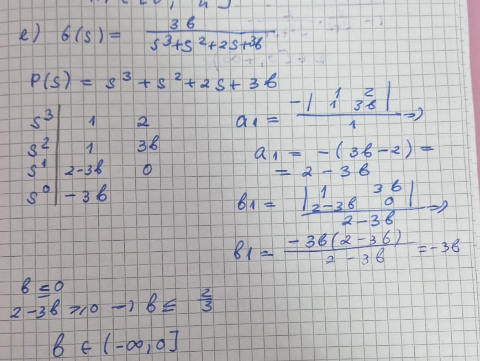 e) G(s) = 3b / s³+s²+2s+3b
P(s) = s³ + s² + 2s + 3b
s³ | 1 2
s² | 1 3b
s¹ | 2-3b 0
s⁰ | -3b
a1 = -| 1 2 | 1 3b | / 1 =>
a1 = -(3b-2) =
= 2 - 3b
b1 = | 1 3b | 2-3b 0 | / 2-3b =>
b1 = -3b(2-3b) / 2-3b = -3b
b ≤ 0
2-3b ≥ 0 → b ≤ 2/3
b ∈ (-∞, 0]